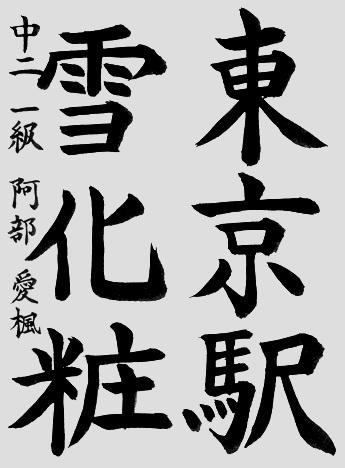 東京駅
雪化粧
中二 一級 阿部 愛楓